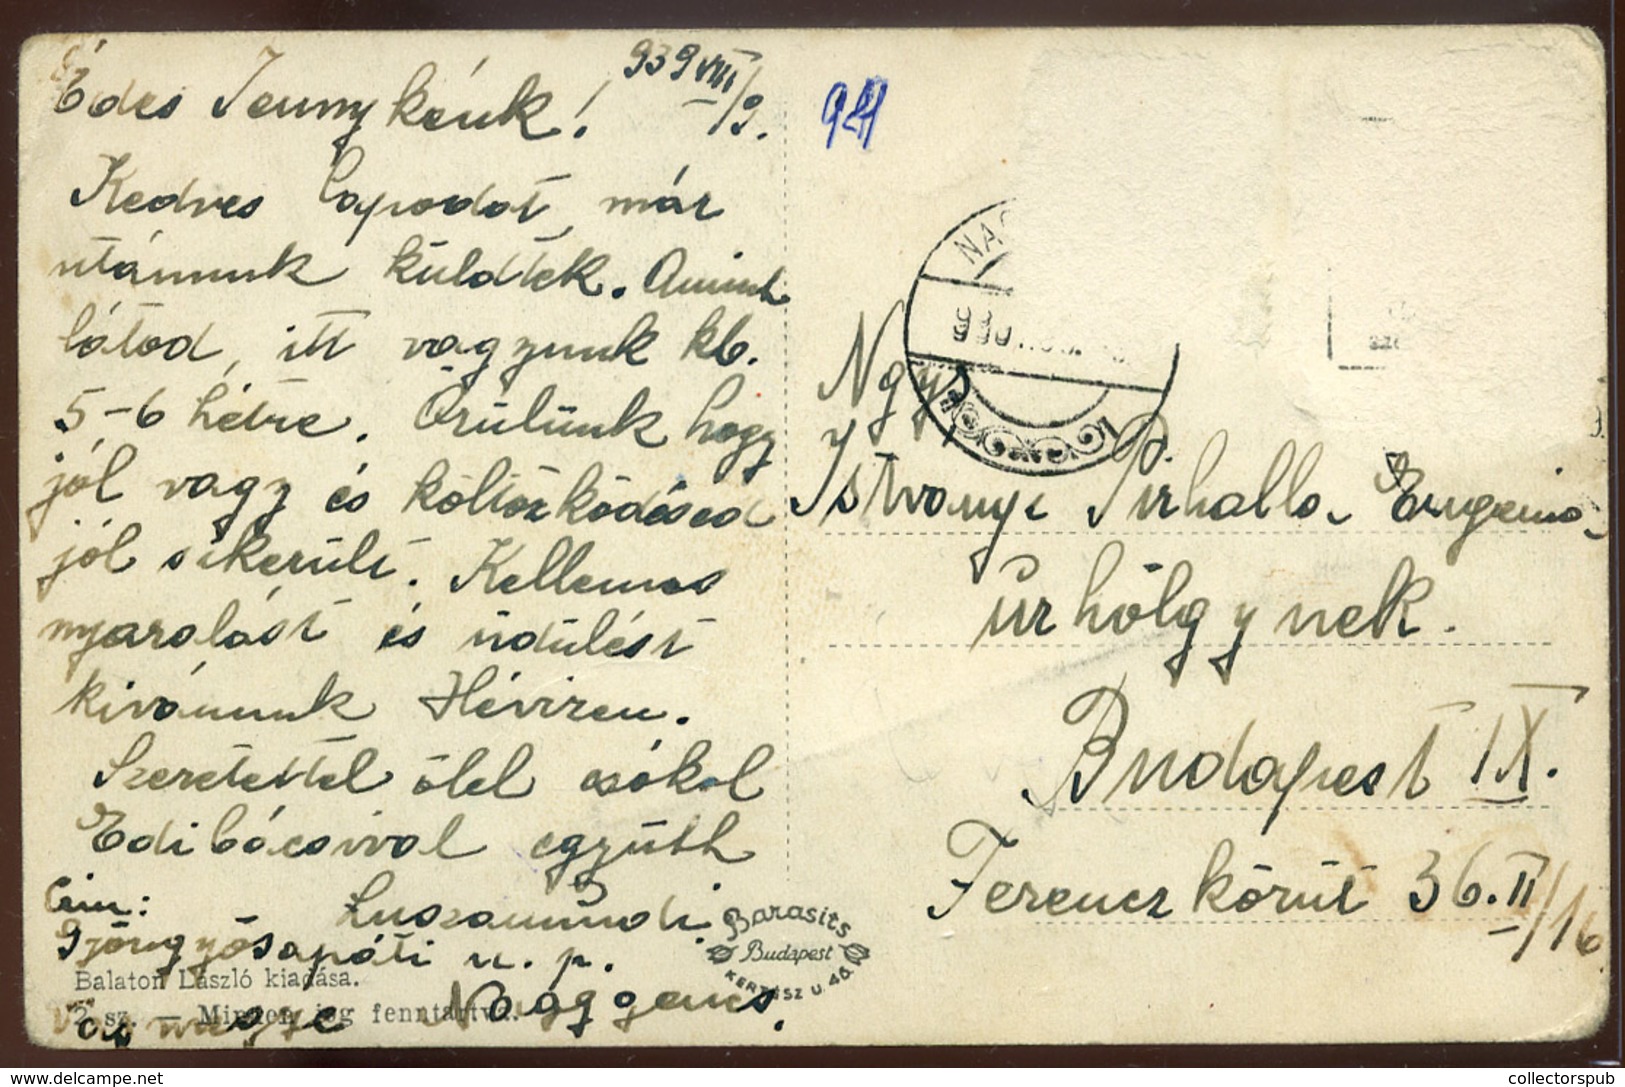 Édes Jennykénk!
939 VIII/9.
Kedves lapodat már
utánunk küldték. Amint
látod, itt vagyunk kb.
5-6 hétre. Örülünk hogy
jól vagy és költözködésed
jól sikerült. Kellemes
nyaralást és üdülést
kivánunk Hévizen.
Szeretettel ölel csókol
Edi bácsival együtt
Cim:
Gyöngyösapáti u. p.
Vas megye Nagygencs.
Balaton László kiadása.
2. sz. — Minden jog fenntartva.
Barasits
Budapest
KERTÉSZ U. 46.
924
NAG
Ngys
Istványi P. Pirhalla Eugenia
úrhölgynek.
Budapest IX.
Ferencz körút 36. II/16
collectorspub
www.delcampe.net